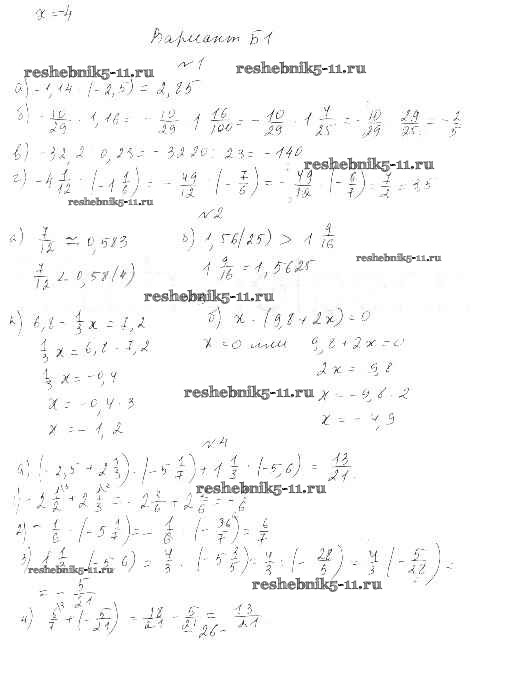 x = -4
Вариант Б1
№1
reshebnik5-11.ru reshebnik5-11.ru
а) -1,14 · (-2,5) = 2,85
б) -10/29 · 1,16 = -10/29 · 1 16/100 = -10/29 · 1 4/25 = -10/29 · 29/25 = -2/5
в) -32,2 : 0,23 = -3220 : 23 = -140
reshebnik5-11.ru
г) -4 1/12 : (-1 1/6) = -49/12 : (-7/6) = -49/12 · (-6/7) = 7/2 =
reshebnik5-11.ru
№2
а) 7/12 ≃ 0,583 б) 1,56(25) > 1 9/16
7/12 < 0,58(4) 1 9/16 = 1,5625
reshebnik5-11.ru
reshebnik5-11.ru
6,8 - 1/3 x = 7,2 б) x · (9,8 + 2x) = 0
1/3 x = 6,8 - 7,2 x = 0 или 9,8 + 2x = 0
1/3 x = -0,4 2x = 9,8
reshebnik5-11.ru
x = -0,4 · 3 x = -9,8 : 2
x = -1,2 x = -4,9
№4
а) (-2,5 + 2 1/3) · (-5 1/7) + 1 1/3 : (-5,6) = 13/21
1) -2 1/2 + 2 1/3 = -2 3/6 + 2 2/6 = -6
reshebnik5-11.ru
2) -1/6 · (-5 1/7) = -1/6 · (-36/7) = 6/7
3) 1 1/3 : (-5,6) = 4/3 : (-5 3/5) = 4/3 : (-28/5) = 4/3 · (-5/28) =
reshebnik5-11.ru
reshebnik5-11.ru
= -5/21
4) 6/7 + (-5/21) = 18/21 - 5/21 = 13/21